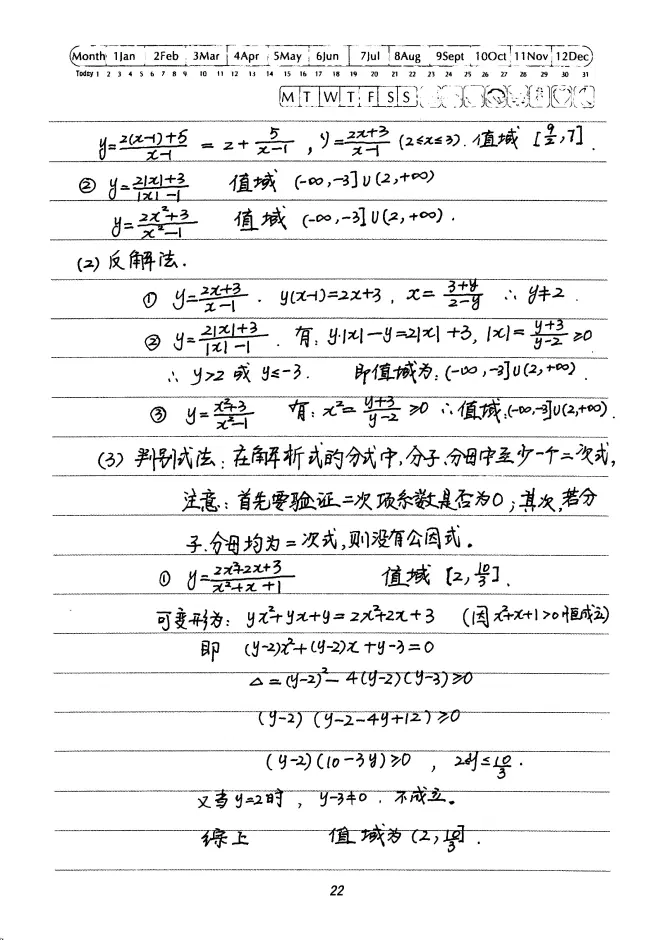 Month 1Jan 2Feb 3Mar 4Apr 5May 6Jun 7Jul 8Aug 9Sept 10Oct 11Nov 12Dec
Today 1 2 3 4 5 6 7 8 9 10 11 12 13 14 15 16 17 18 19 20 21 22 23 24 25 26 27 28 29 30 31
M T W T F S S
y=\frac{2(x-1)+5}{x-1} = 2+\frac{5}{x-1}, y=\frac{2x+3}{x-1} (2≤x≤3). 值域 [\frac{9}{2},7].
② y=\frac{2|x|+3}{|x|-1} 值域 (-∞,-3]∪(2,+∞)
y=\frac{2x²+3}{x²-1} 值域 (-∞,-3]∪(2,+∞).
(2) 反解法.
① y=\frac{2x+3}{x-1}. y(x-1)=2x+3, x=\frac{3+y}{2-y} ∴ y≠2.
② y=\frac{2|x|+3}{|x|-1}. 有: y·|x|-y=2|x|+3, |x|=\frac{y+3}{y-2}≥0
∴ y>2 或 y≤-3. 即值域为: (-∞,-3]∪(2,+∞).
③ y=\frac{x²+3}{x²-1} 有: x²=\frac{y+3}{y-2}≥0 ∴值域: (-∞,-3]∪(2,+∞).
(3) 判别式法: 在解析式的分式中,分子、分母中至少一个二次式,
注意: 首先要验证二次项系数是否为0; 其次,若分
子、分母均为二次式,则没有公因式.
① y=\frac{2x²+2x+3}{x²+x+1} 值域 [2,\frac{10}{3}].
可变形为: yx²+yx+y=2x²+2x+3 (因x²+x+1>0恒成立)
即 (y-2)x²+(y-2)x+y-3=0
△=(y-2)²-4(y-2)(y-3)≥0
(y-2)(y-2-4y+12)≥0
(y-2)(10-3y)≥0, 2≤y≤\frac{10}{3}.
又当y=2时, y-3≠0. 不成立.
综上 值域为 (2,\frac{10}{3}].
22